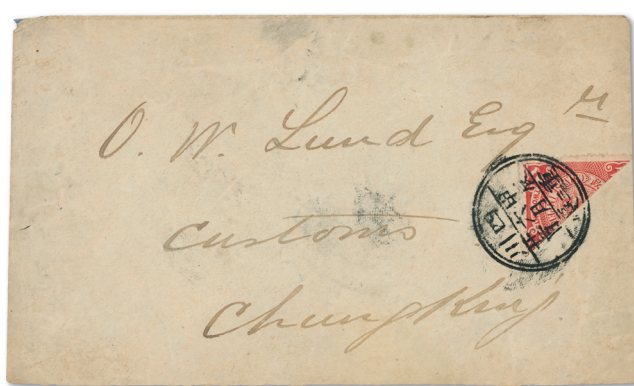 O. W. Lund Esq re
Customs
Chungking